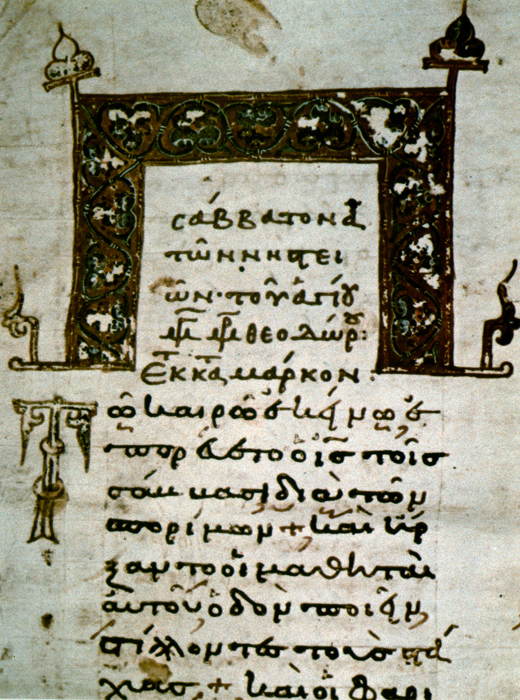 σάββατον α
τῶν νηστει
ῶν· τοῦ ἁγίου
μ μ θεοδώρ:
Ἐκ κτ μάρκον·
Τῶ καιρῶ ἐκείνω ἐ
πορεύετο ὁ ις τοῖς
σάββασι διὰ τῶν
σπορίμων + καὶ ἤρ
ξαντο οἱ μαθηταὶ
αὐτοῦ ὁδὸν ποιεῖν
τίλλοντες τοὺς στά
χυας + καὶ οἱ φαρι